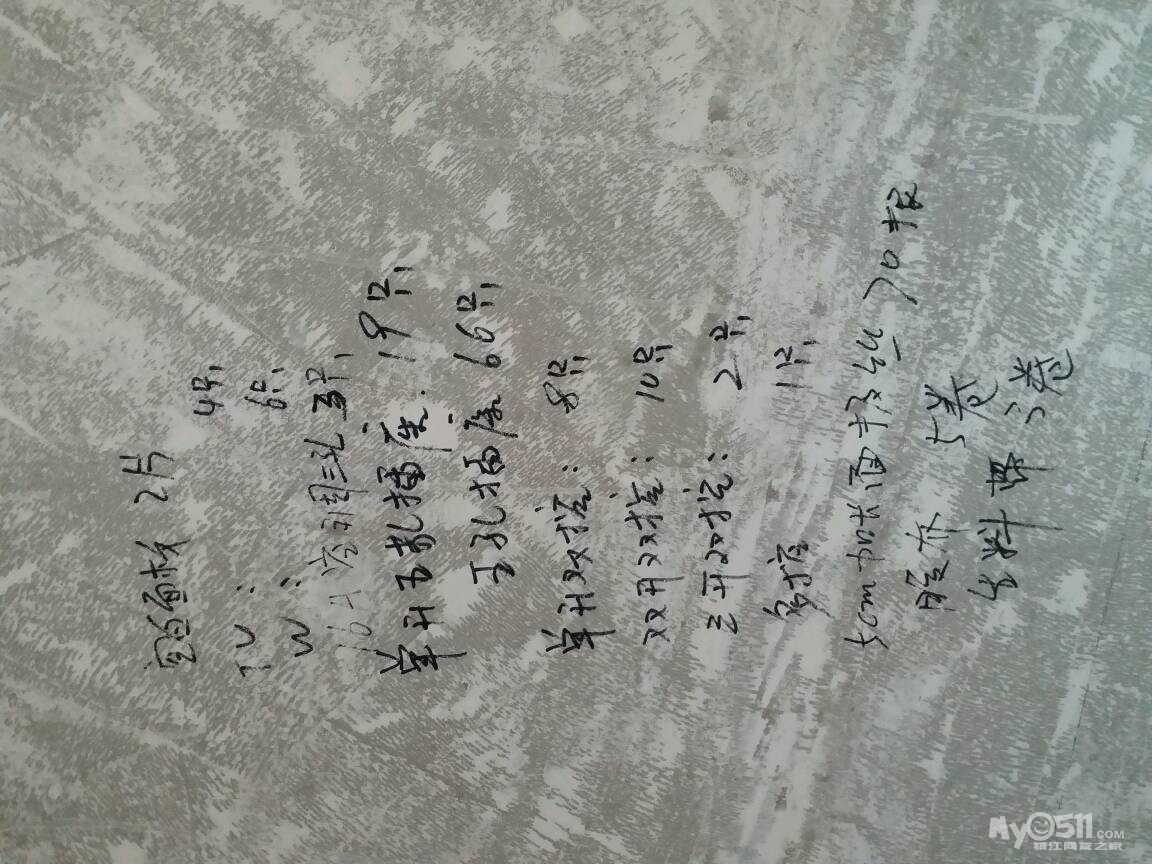 空白面板 2片
TV: 4只
W: 6只
16A 空调三孔 5只
单开五孔插座: 19只
五孔插座 66只
单开双控: 8只
双开双控: 10只
三开双控: 2只
多控 1只
5cm加长面板丝 70根
胶布 5卷
生料带 3卷
My0511.COM
镇江网友之家